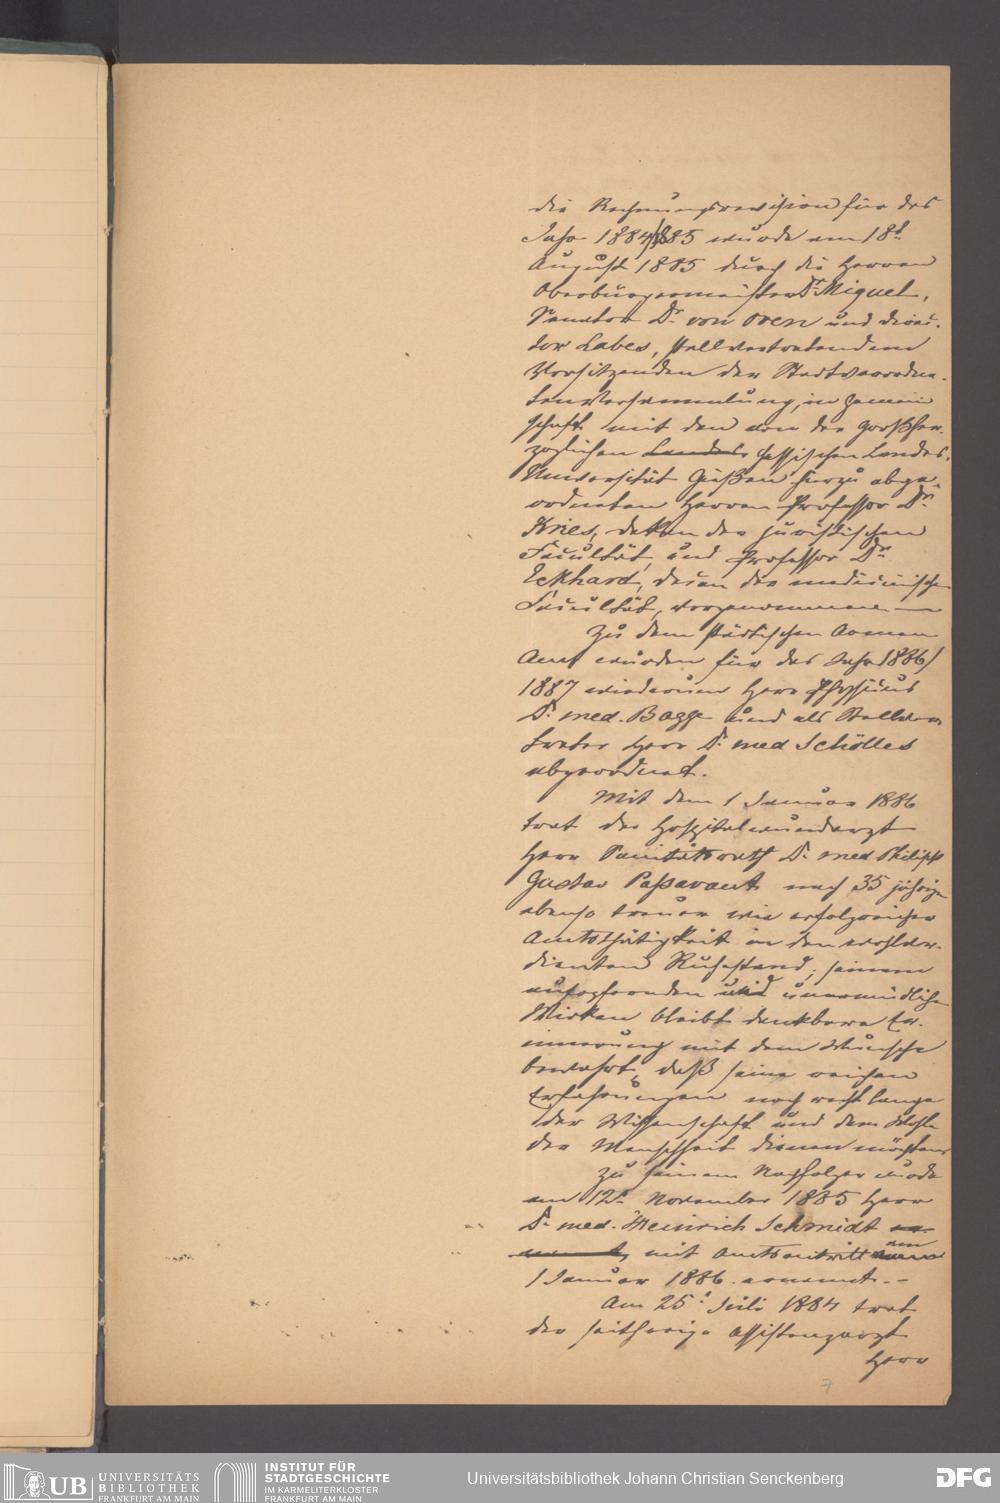 die Rechnungsrevision für das
Jahr 1884/1885 wurde am 18t.
August 1885 durch die Herren
Oberbürgermeister Dr. Miquel,
Senator Dr. von Oven und Direc-
tor Labes, stellvertretendem
Vorsitzenden der Stadtverordne-
tenversammlung, in Gemein
schaft mit den von der Großher-
zoglichen Landes hessischen Landes-
Universität Gießen hierzu abge-
ordneten Herren Professor Dr.
Kries, Dekan der juristischen
Facultät, und Professor Dr.
Eckhard, Decan der medicinischen
Facultät, vorgenommen.
Zu dem städtischen Armen
Amt wurden für das Jahr 1886/
1887 wiederum Herr Physicus
Dr. med. Bagge und als Stellver
treter Herr Dr. med Schölles
abgeordnet.
Mit dem 1 Januar 1886
trat der Hospitalwundarzt
Herr Sanitätsrath Dr. med Philipp
Gustav Passavant nach 35 jähriger
ebenso treuer wie erfolgreicher
Amtsthätigkeit in den wohlver-
dienten Ruhestand; seinem
aufopfernden und unermüdlichen
Wirken bleibt dankbare Er-
innerung mit dem Wunsche
bewahrt, daß seine reichen
Erfahrungen noch recht lange
der Wissenschaft und dem Wohle
der Menschheit dienen möchten.
Zu seinem Nachfolger wurde
am 12t. November 1885 Herr
Dr. med. Heinrich Schmidt
mit Amtsantritt am
1 Januar 1886 ernannt. –
Am 25t. Juli 1884 trat
der seitherige Assistenzarzt
Herr
7
UB UNIVERSITÄTS
BIBLIOTHEK
FRANKFURT AM MAIN
INSTITUT FÜR
STADTGESCHICHTE
IM KARMELITERKLOSTER
FRANKFURT AM MAIN
Universitätsbibliothek Johann Christian Senckenberg
DFG